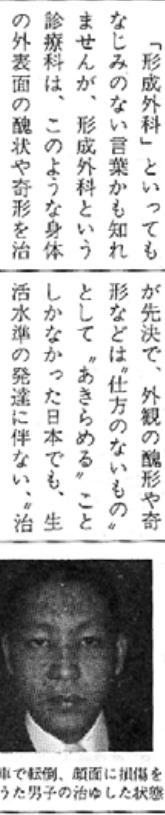 「形成外科」といっても
なじみのない言葉かも知れ
ませんが、形成外科という
診療科は、このような身体
の外表面の醜状や奇形を治
が先決で、外観の醜形や奇
形などは〝仕方のないもの〟
として〝あきらめる〟こと
しかなかった日本でも、生
活水準の発達に伴ない、〝治
車で転倒、顔面に損傷を
うた男子の治ゆした状態